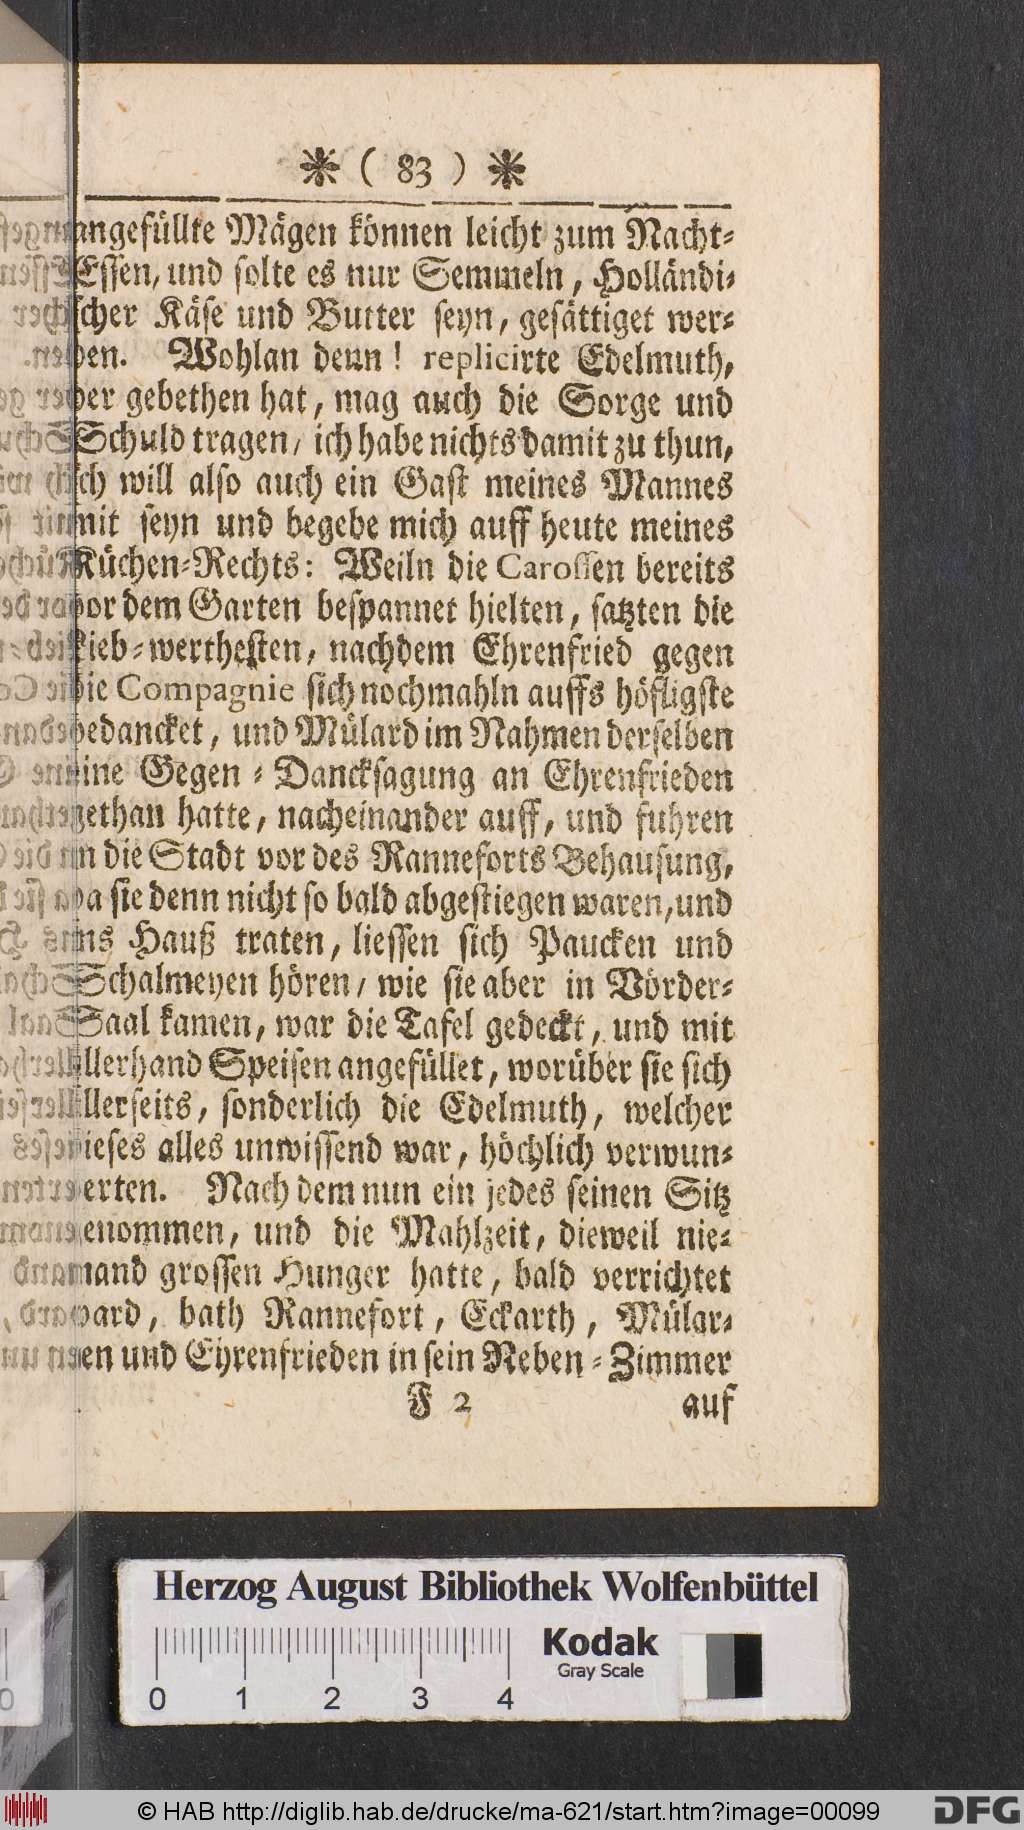 * ( 83 ) *
angefüllte Mägen können leicht zum Nacht-
Essen, und solte es nur Semmeln, Holländi-
scher Käse und Butter seyn, gesättiget wer-
den. Wohlan denn! replicirte Edelmuth,
der gebethen hat, mag auch die Sorge und
Schuld tragen, ich habe nichts damit zu thun,
ich will also auch ein Gast meines Mannes
mit seyn und begebe mich auff heute meines
Küchen-Rechts: Weiln die Carossen bereits
vor dem Garten bespannet hielten, satzten die
Lieb-werthesten, nachdem Ehrenfried gegen
die Compagnie sich nochmahln auffs höfligste
bedancket, und Mülard im Nahmen derselben
eine Gegen-Dancksagung an Ehrenfrieden
gethan hatte, nacheinander auff, und fuhren
in die Stadt vor des Ranneforts Behausung,
da sie denn nicht so bald abgestiegen waren, und
ins Hauß traten, liessen sich Paucken und
Schalmeyen hören, wie sie aber in Vörder-
Saal kamen, war die Tafel gedeckt, und mit
allerhand Speisen angefüllet, worüber sie sich
allerseits, sonderlich die Edelmuth, welcher
dieses alles unwissend war, höchlich verwun-
derten. Nach dem nun ein jedes seinen Sitz
genommen, und die Mahlzeit, dieweil nie-
mand grossen Hunger hatte, bald verrichtet
ward, bath Rannefort, Eckarth, Mülar-
den und Ehrenfrieden in sein Neben-Zimmer
F 2 auf
Herzog August Bibliothek Wolfenbüttel
Kodak
Gray Scale
0 1 2 3 4
© HAB http://diglib.hab.de/drucke/ma-621/start.htm?image=00099
DFG